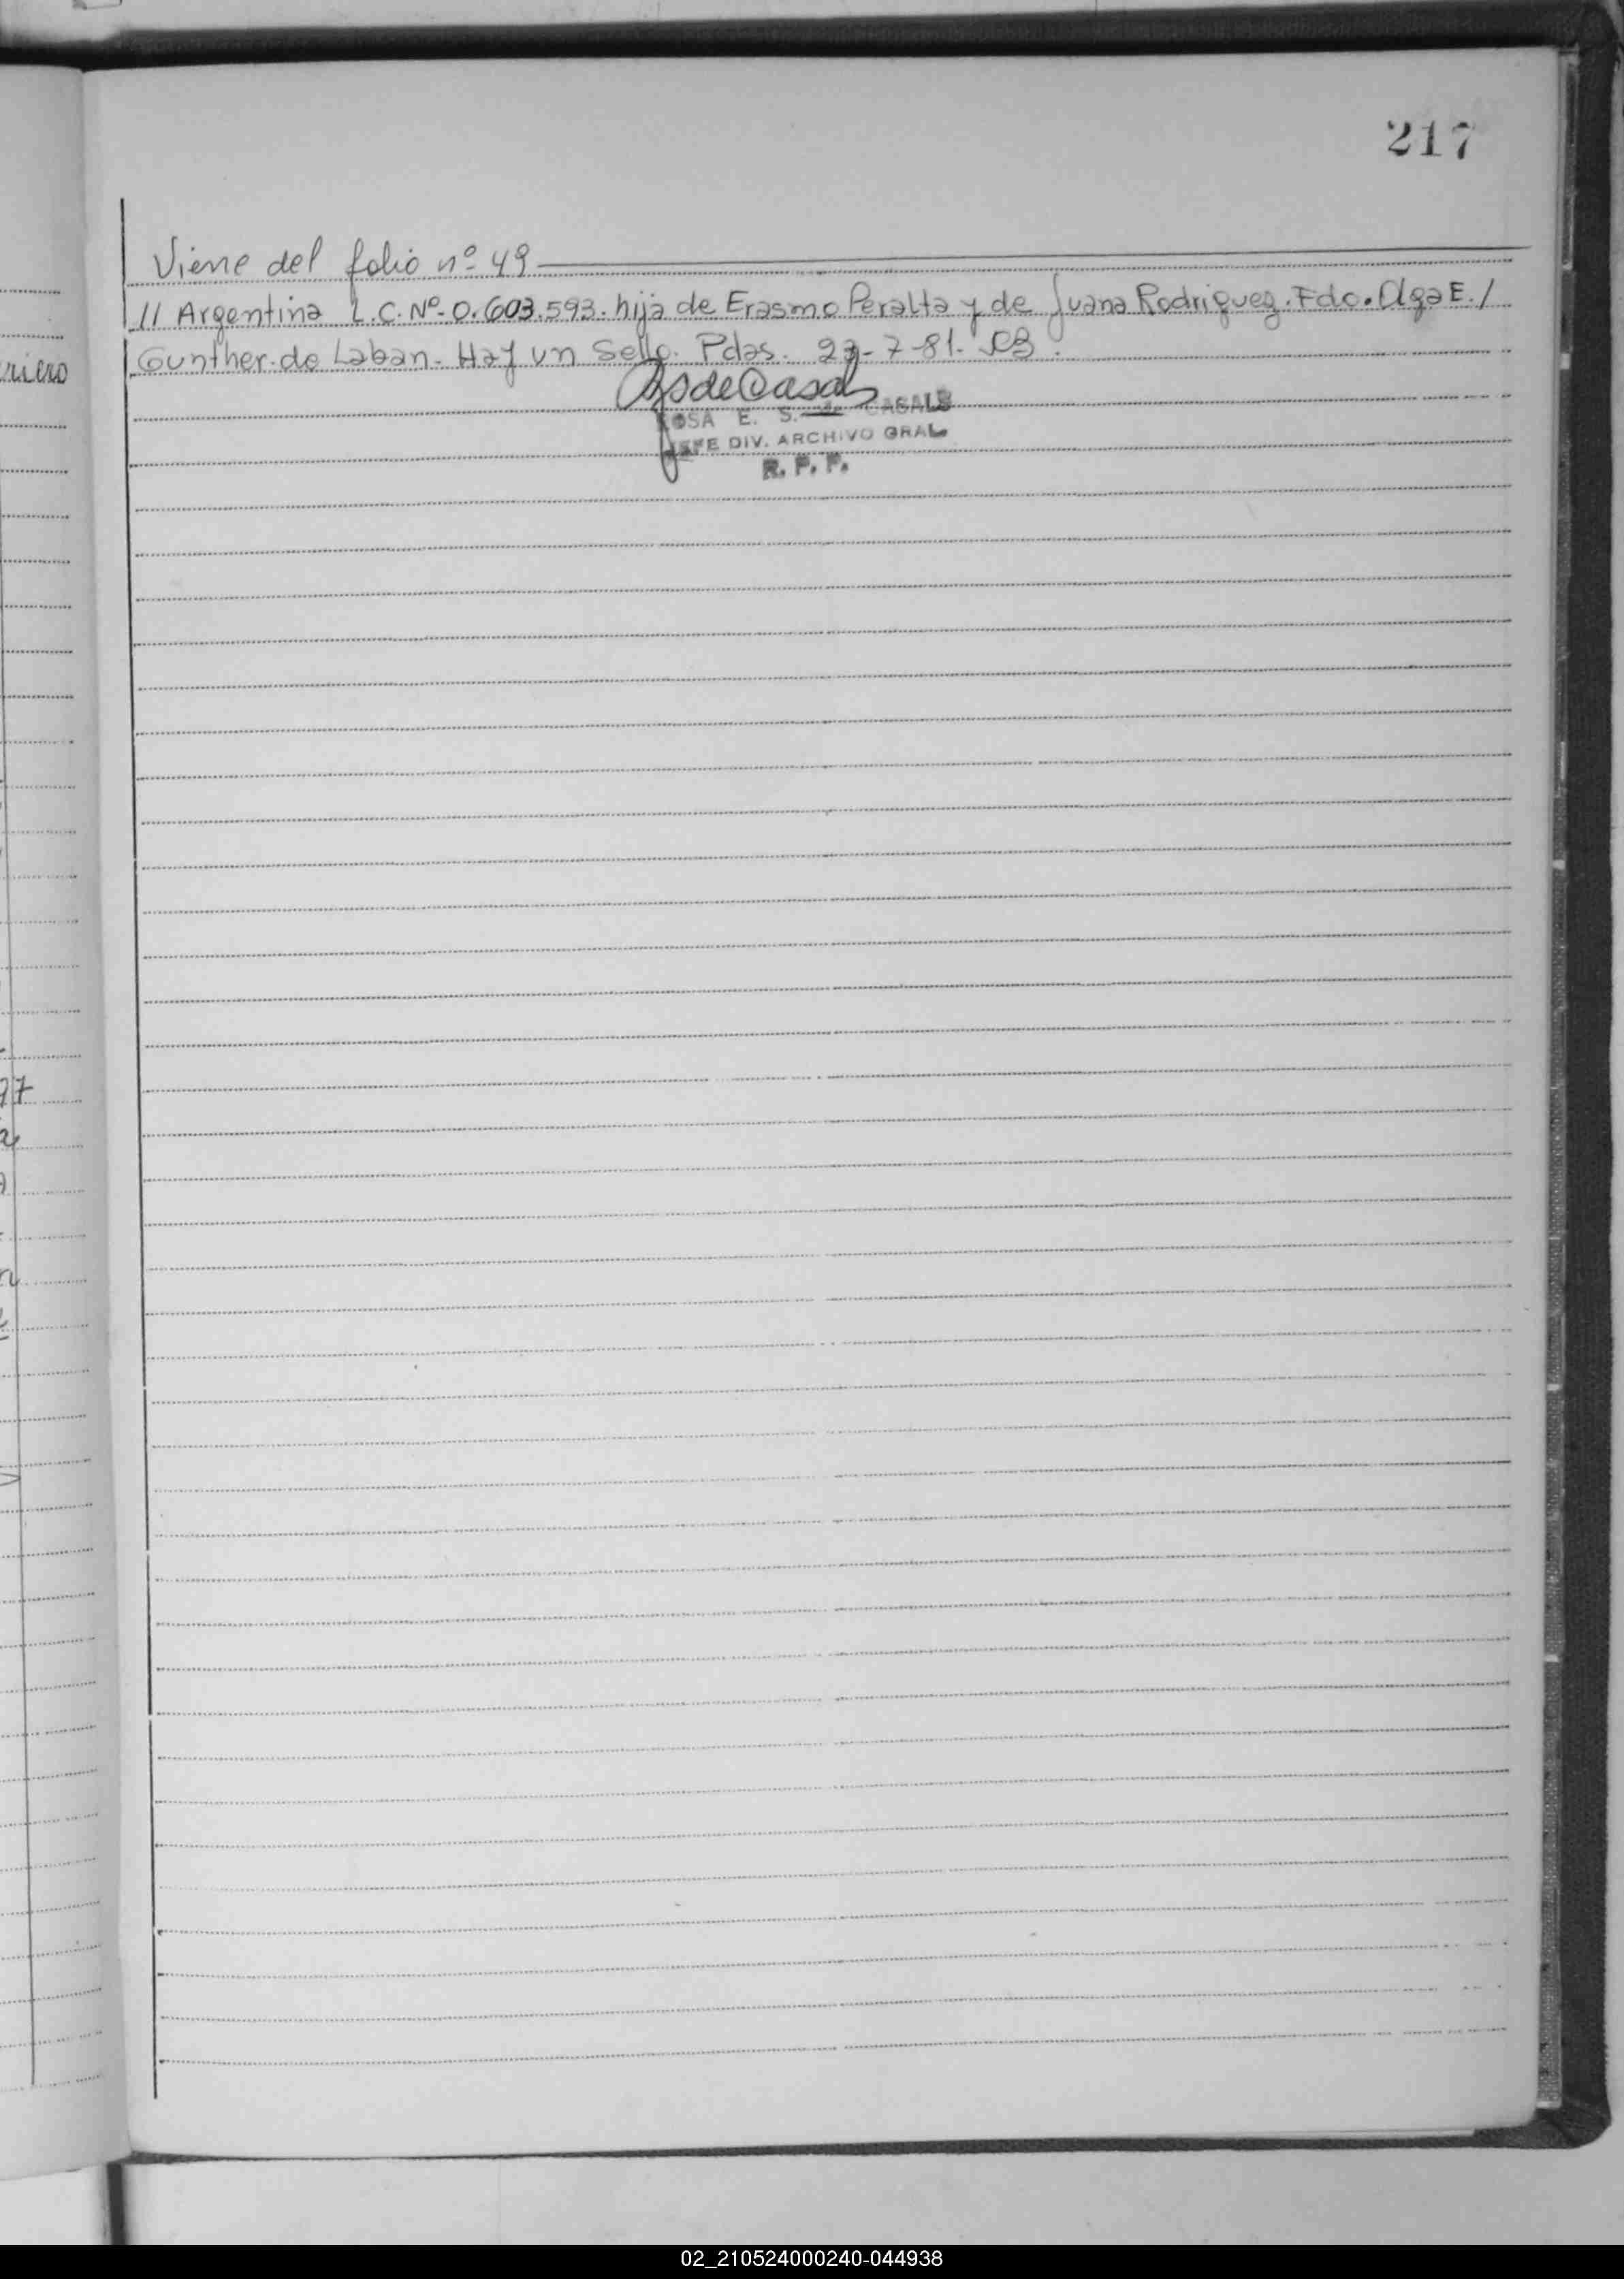 217
Viene del folio nº 49
// Argentina L.C. Nº 0.603.593. hija de Erasmo Peralta y de Juana Rodriguez. Fdo. Olga E. /
Gunther de Laban. Hay un Sello. Pdas. 23-7-81.
ROSA E. S. de CASALS
JEFE DIV. ARCHIVO GRAL
R. P. P.
02_210524000240-044938